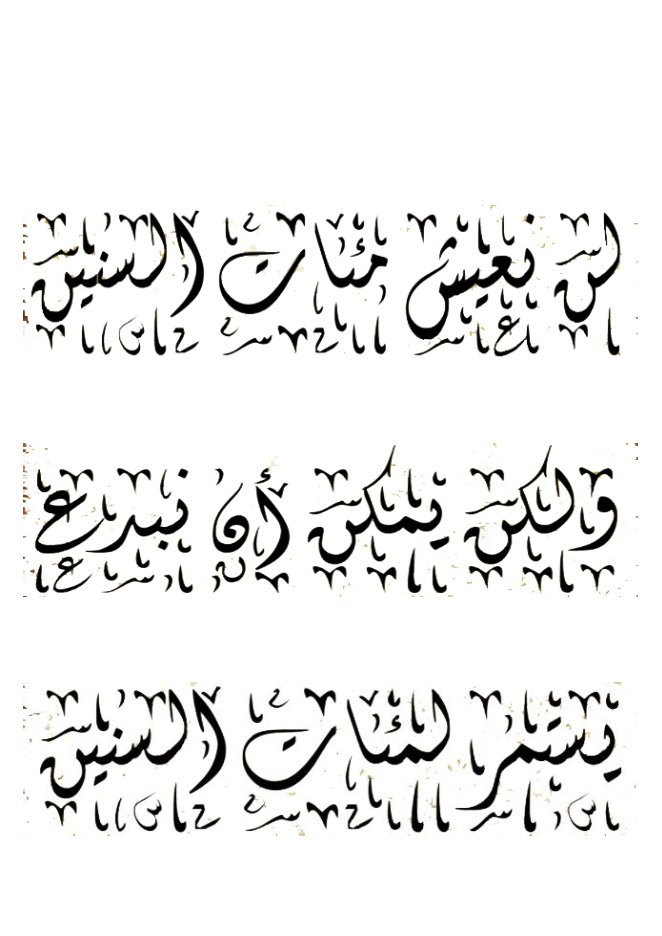 لن نعيش مئات السنين
ولكن يمكن أن نبدع
يستمر لمئات السنين